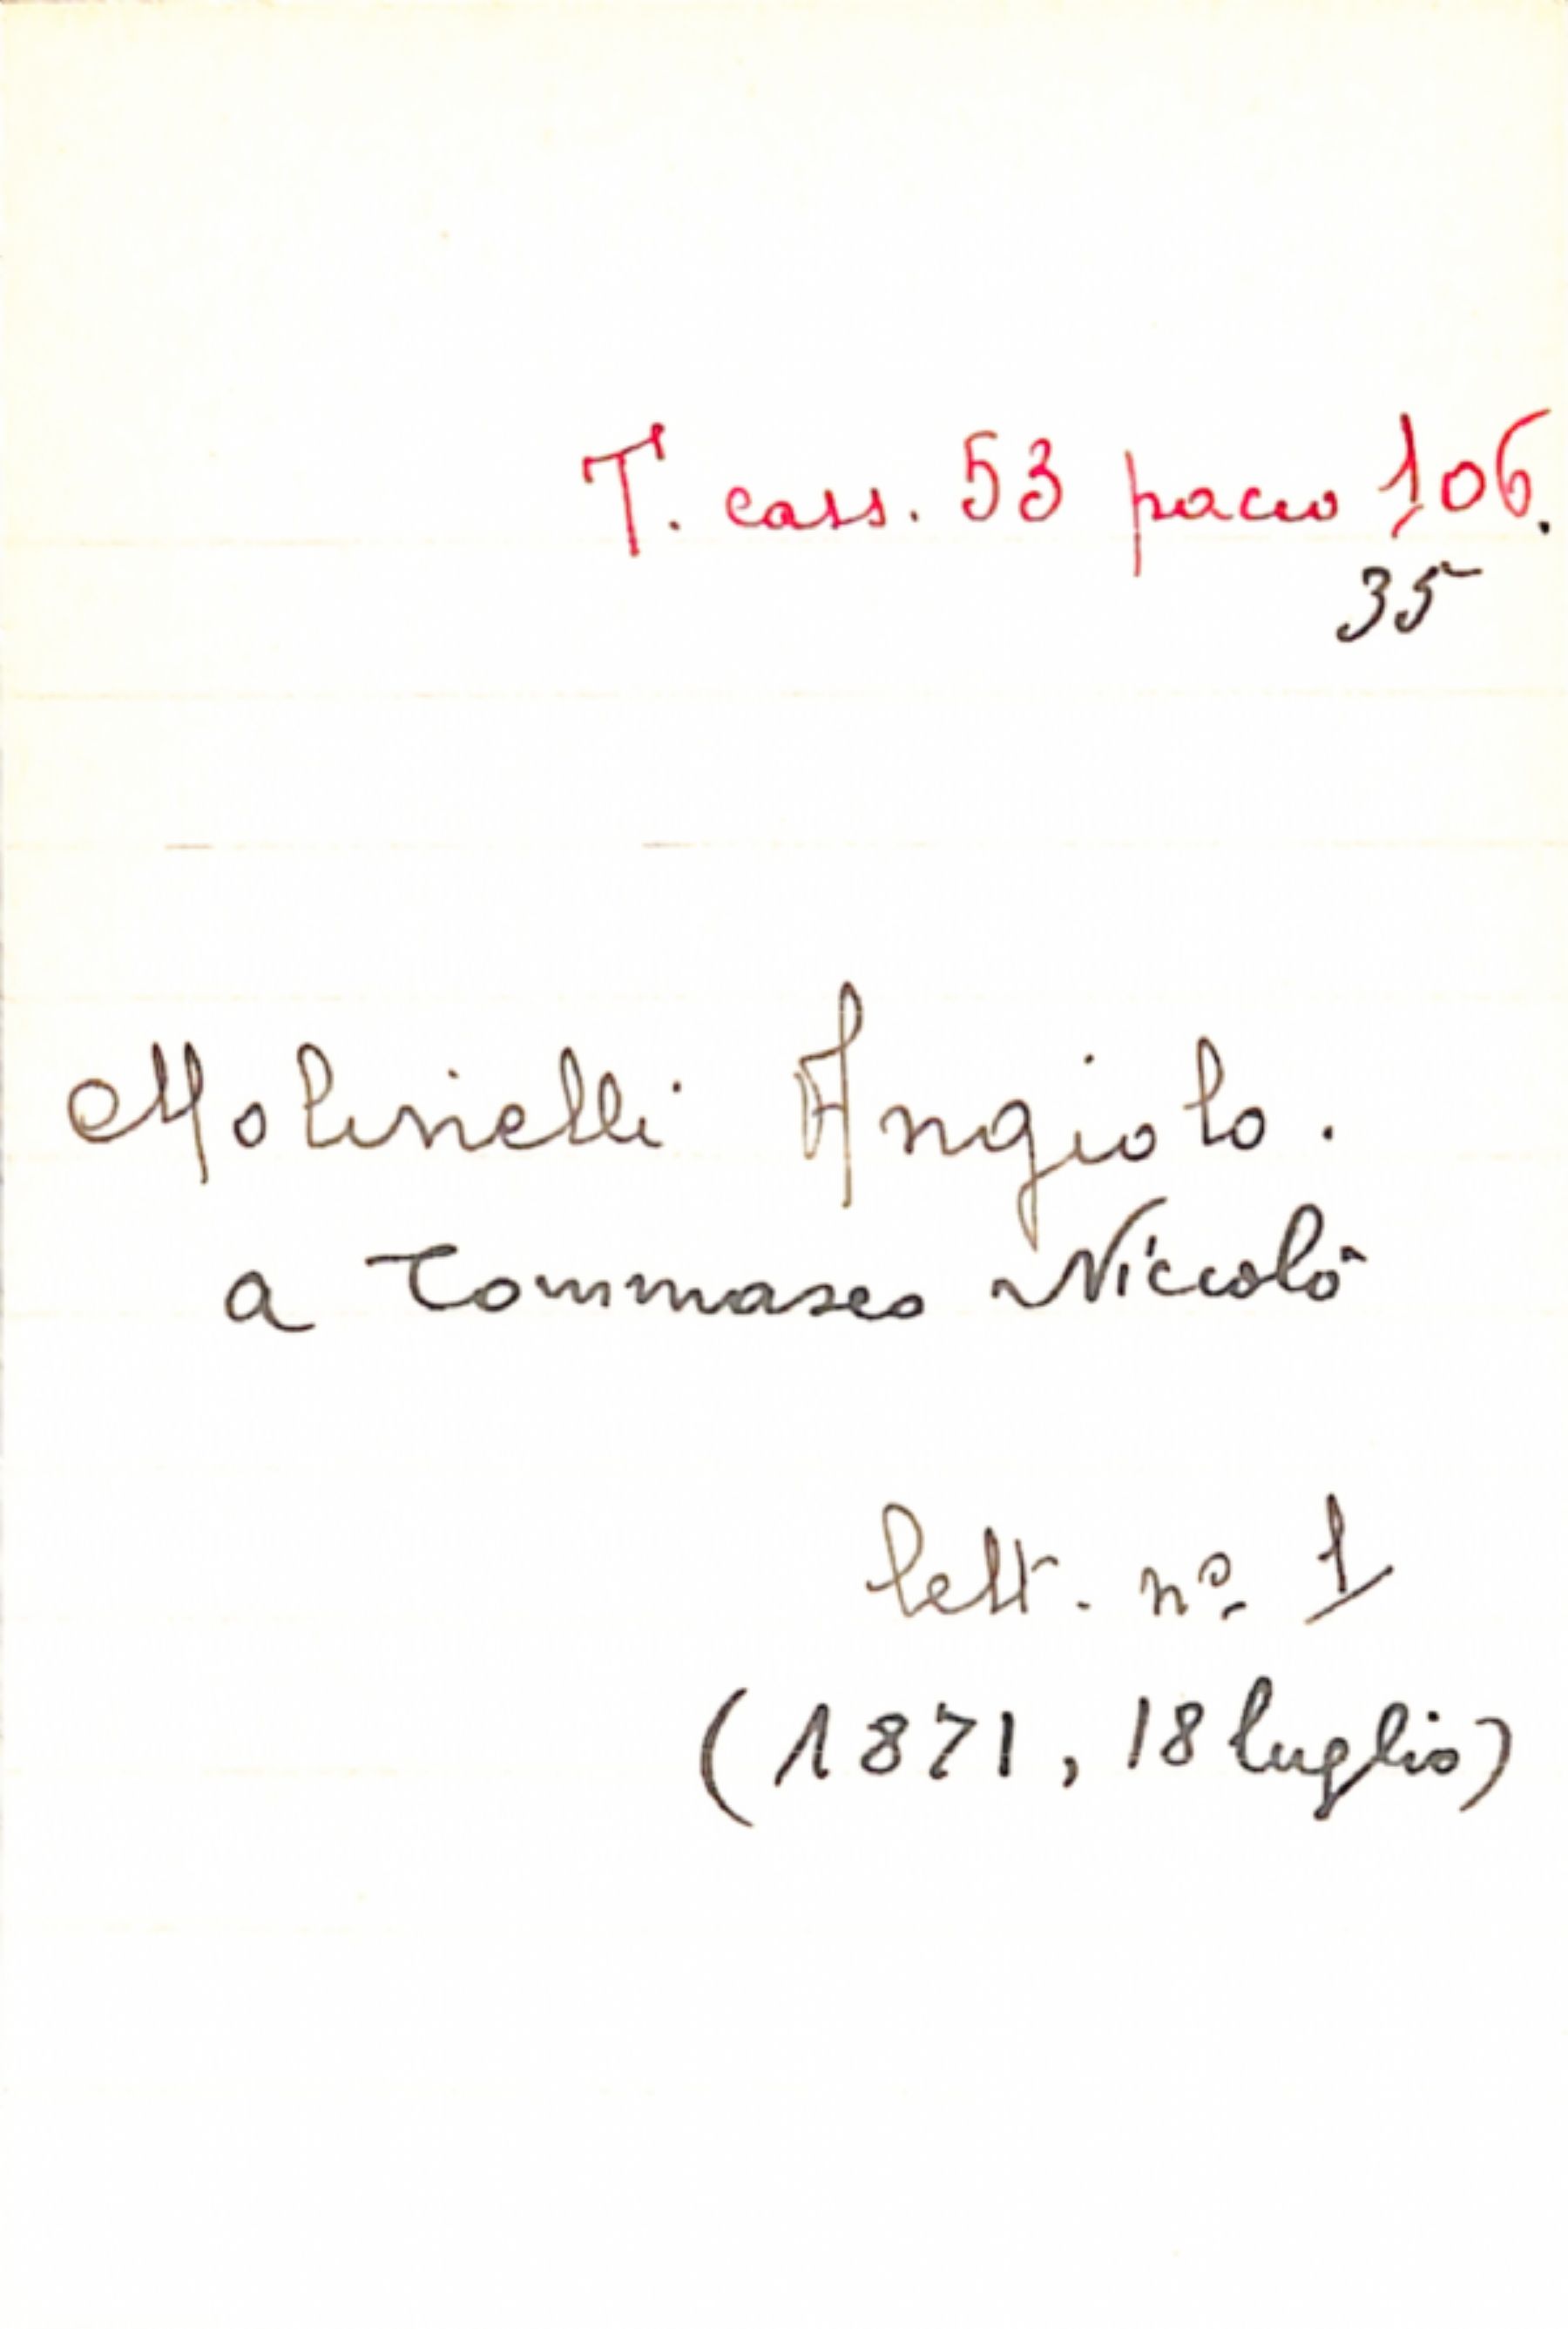 T. cass. 53 pacco 106.
35
Molinelli Angiolo.
a Tommaseo Niccolò
lett. nº 1
(1871, 18 luglio)